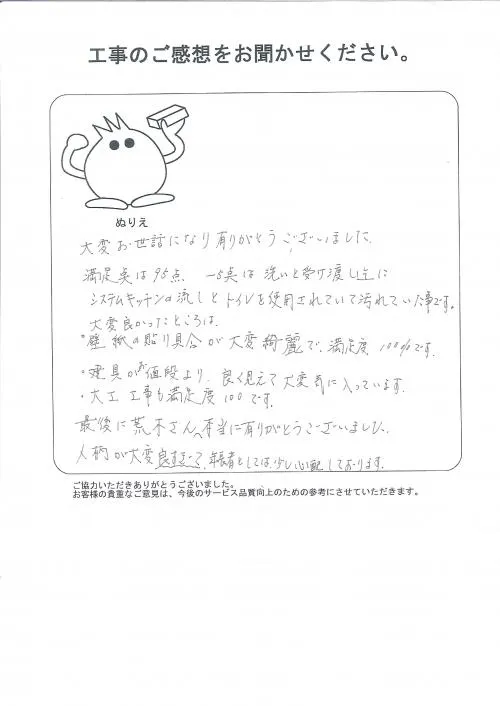 工事のご感想をお聞かせください。
ぬりえ
大変お世話になり有りがとうございました。
満足点は95点 -5点は洗いと受け渡し上に
システムキッチンの流しとトイレを使用されていて汚れていた事です。
大変良かったところは、
・壁紙の貼り具合が大変綺麗で、満足度100%です。
・建具がお値段より、良く見えて大変気に入っています。
・大工工事も満足度100です。
最後に荒木さん、本当に有りがとうございました。
人柄が大変良すぎて、年長者としては少し心配しております。
ご協力いただきありがとうございました。
お客様の貴重なご意見は、今後のサービス品質向上のための参考にさせていただきます。